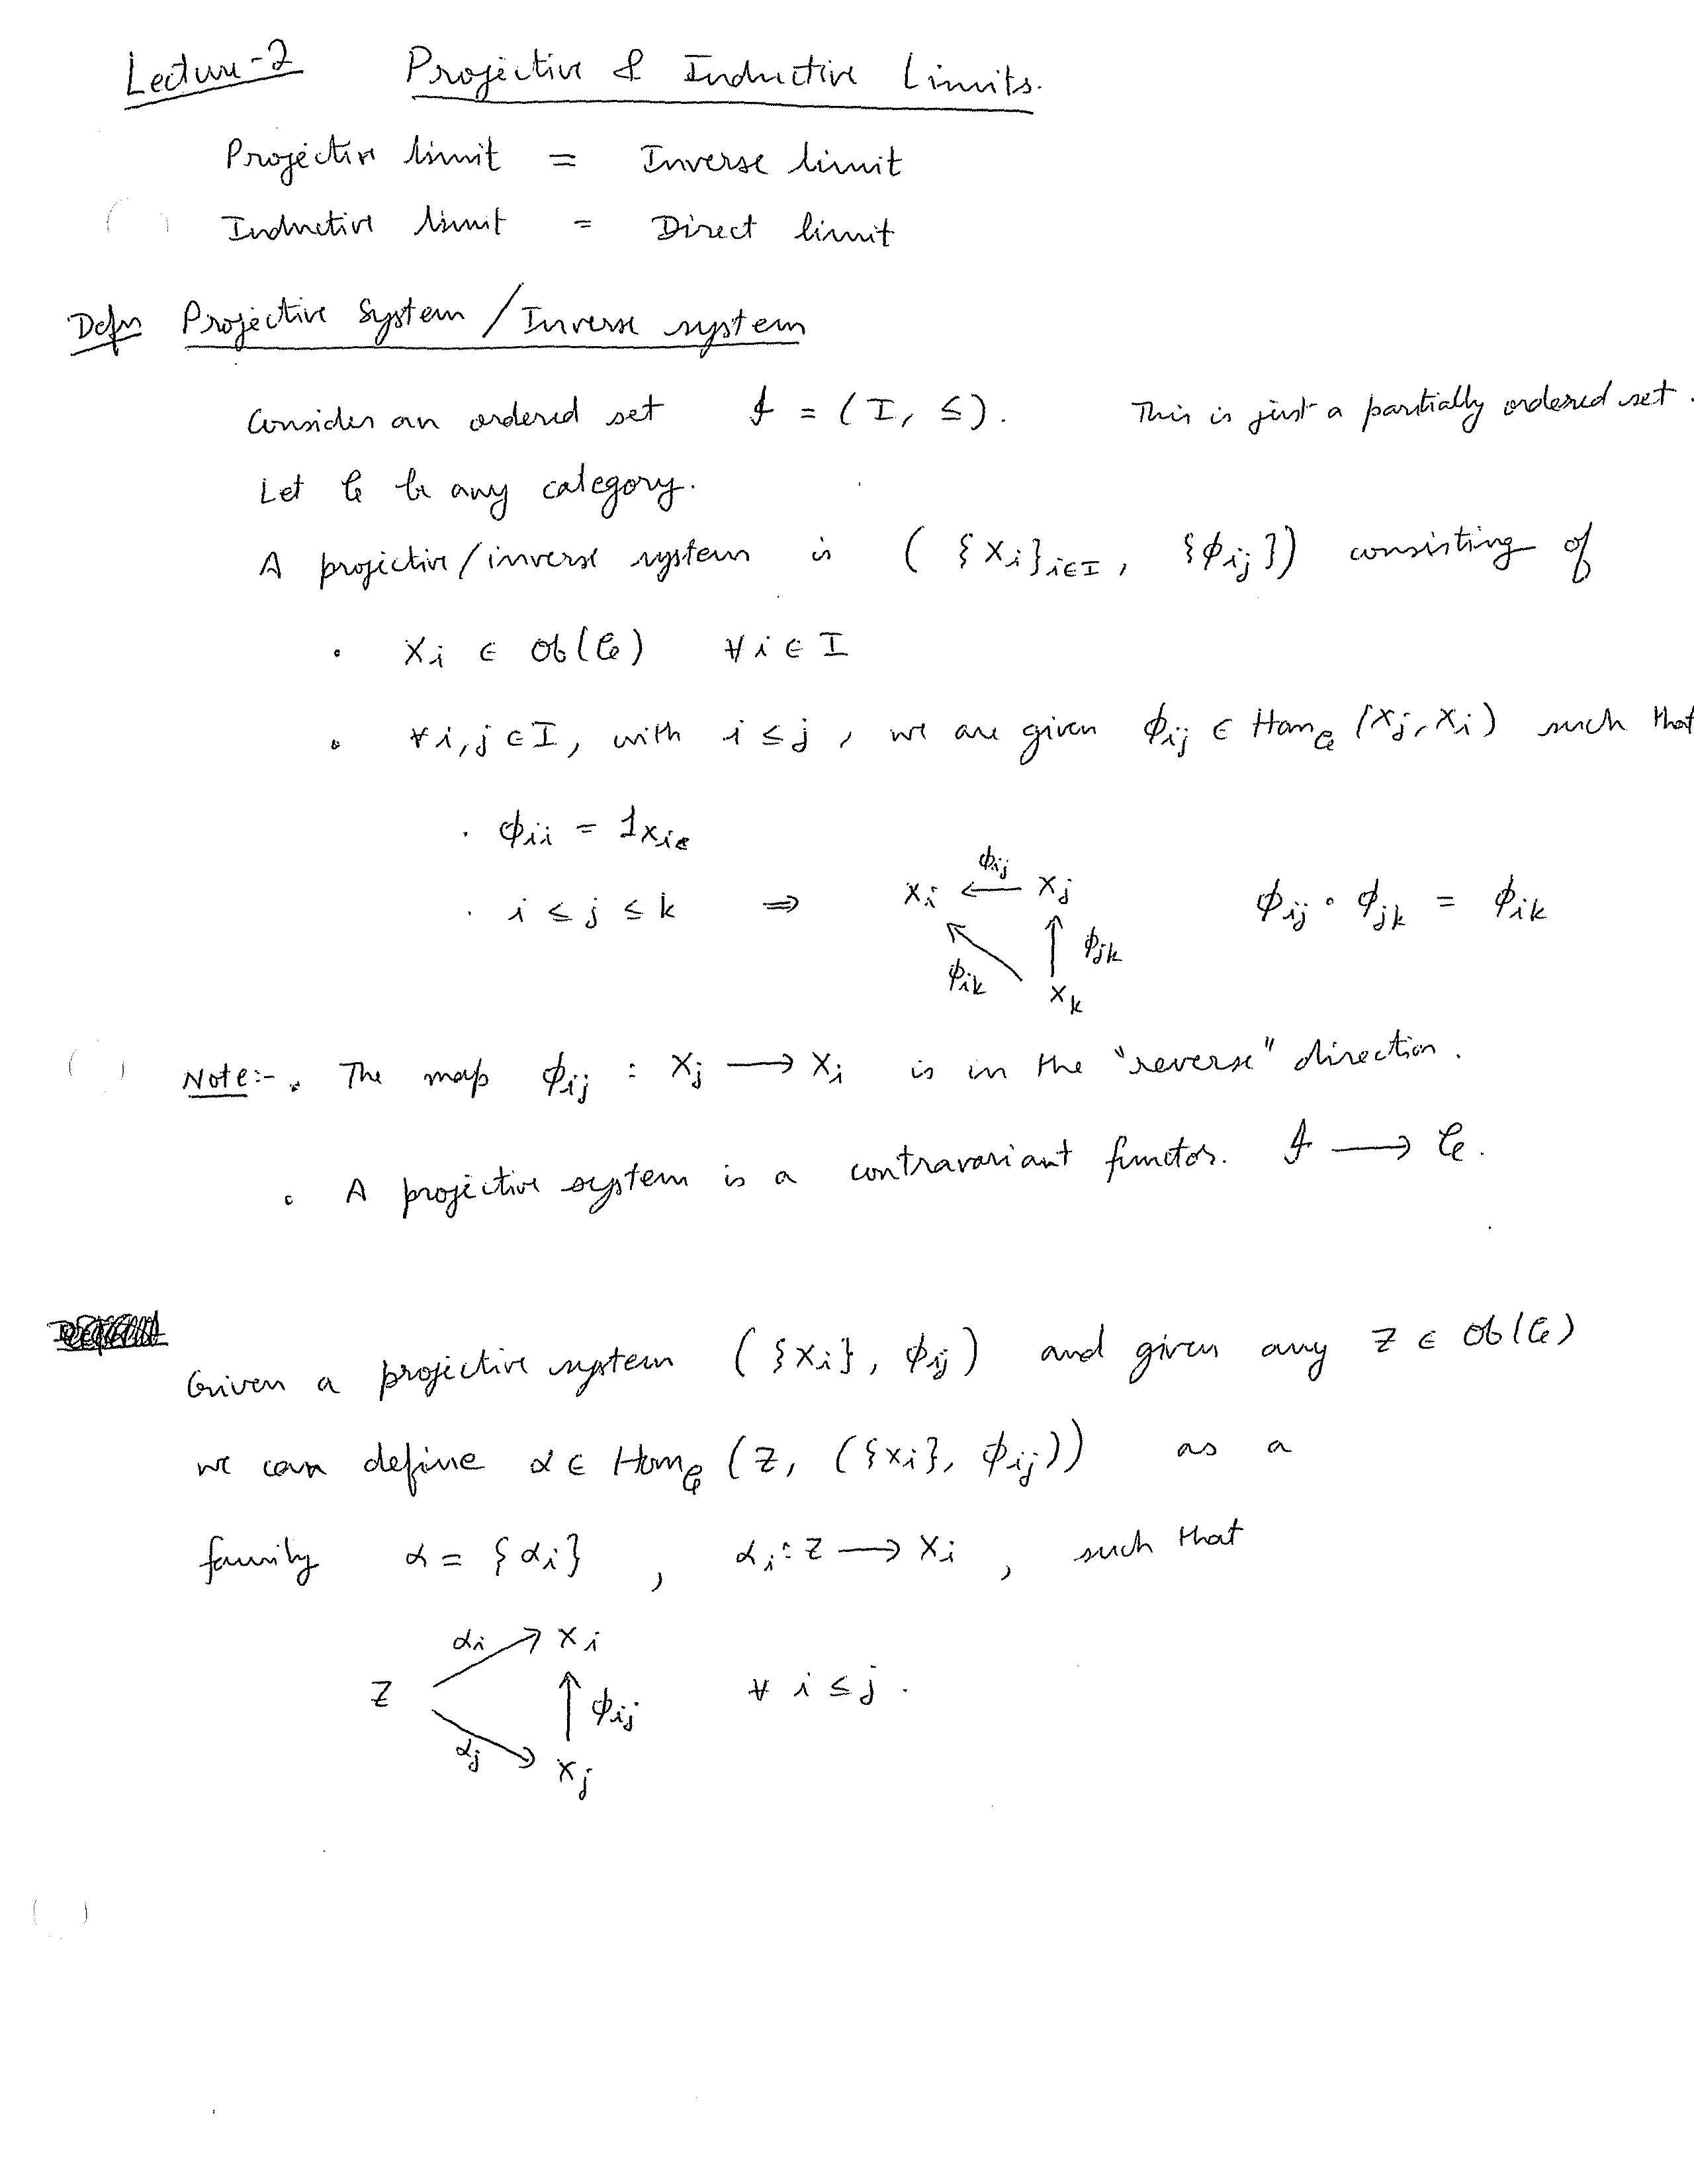 Lecture-2 Projective & Inductive Limits.
Projective limit = Inverse limit
Inductive limit = Direct limit
Defn Projective System / Inverse system
Consider an ordered set 𝓘 = (I, ≤). This is just a partially ordered set.
Let 𝒞 be any category.
A projective/inverse system is ( {Xi}i∈I , {ϕij}) consisting of
• Xi ∈ Ob(𝒞) ∀ i ∈ I
• ∀ i, j ∈ I, with i ≤ j, we are given ϕij ∈ Hom𝒞 (Xj, Xi) such that
· ϕii = 1Xi
· i ≤ j ≤ k ⇒ Xi ←ϕij Xj ϕij ∘ ϕjk = ϕik
ϕik ↖ ↑ ϕjk
Xk
Note:- • The map ϕij : Xj ⟶ Xi is in the "reverse" direction.
• A projective system is a contravariant functor. 𝓘 ⟶ 𝒞.
Given a projective system ({Xi}, ϕij) and given any Z ∈ Ob(𝒞)
we can define α ∈ Hom𝒞 (Z, ({Xi}, ϕij)) as a
family α = {αi} , αi : Z ⟶ Xi , such that
αi ↗ Xi
Z ↑ ϕij ∀ i ≤ j.
αj ↘ Xj